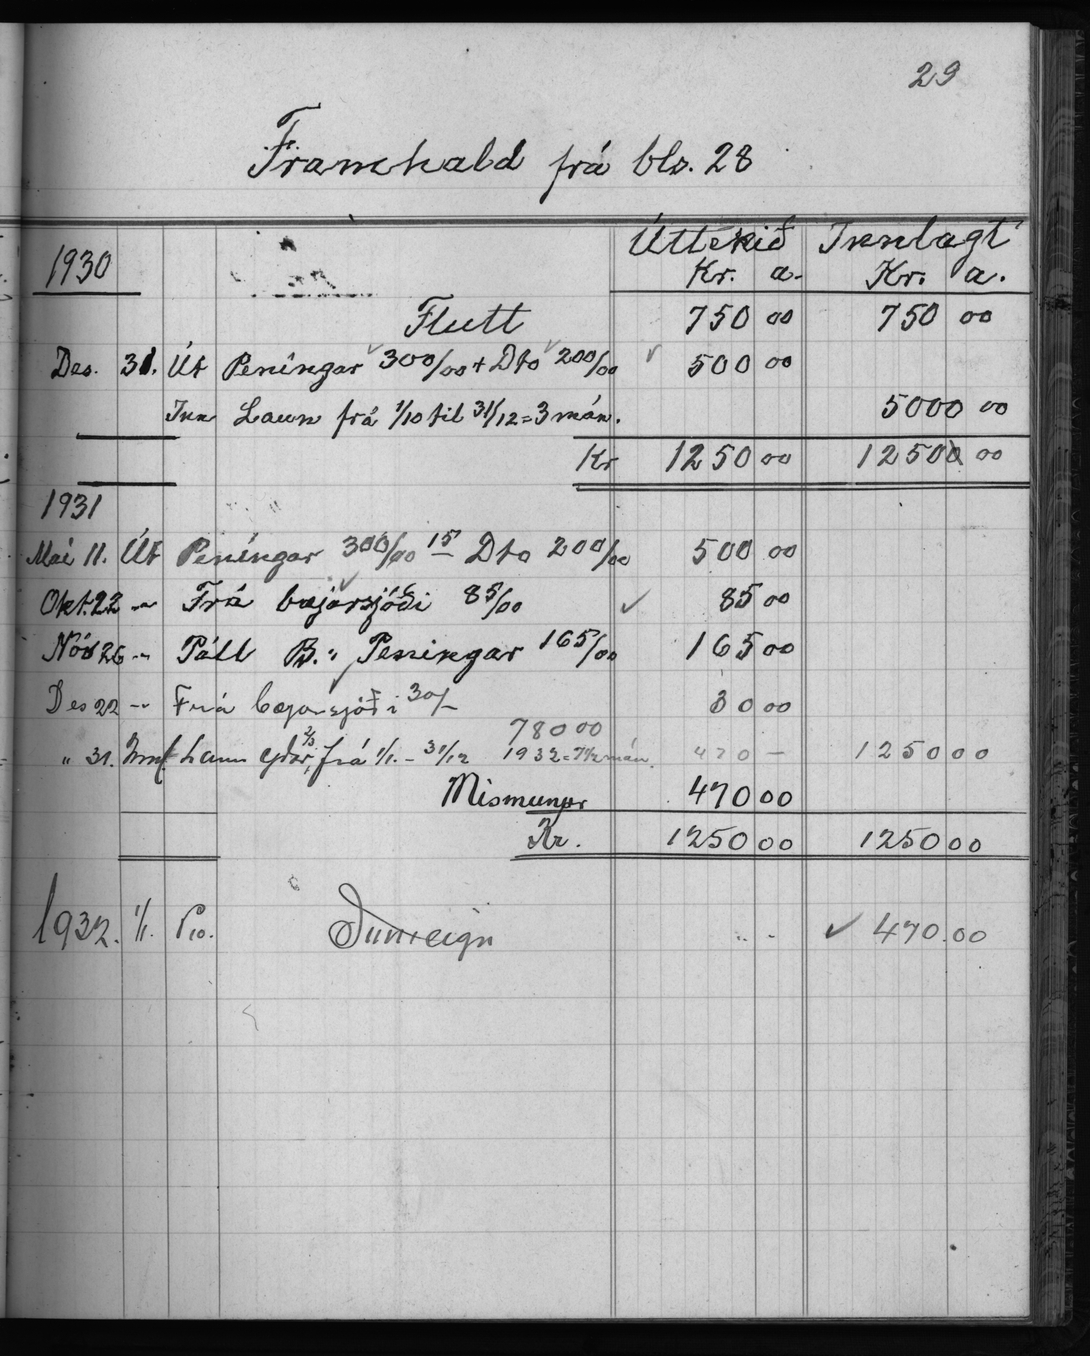 29
Framhald frá bls. 28
1930 Úttekið Innlagt
Kr. a. Kr. a.
Flutt 750 00 750 00
Des. 31. Út Peningar 300/00 + Dto 200/00 500 00
Inn Laun frá 1/10 til 31/12 = 3 mán. 5000 00
Kr 1250 00 12500 00
1931
Mai 11. Út Peningar 300/00 15 Dto 200/00 500 00
Okt. 22 -"- Frá bæjarsjóði 85/00 85 00
Nóv 26 -"- Páll B. Peningar 165/00 165 00
Des 22 -"- Frá bæjarsjóði 30/- 30 00
780 00
" 31. Laun frá 1/1. - 31/12 1932 = 7 1/2 mán. 470 - 1250 00
Mismunur 470 00
Kr. 1250 00 1250 00
1932. 1/1. Pr. Inneign 470.00